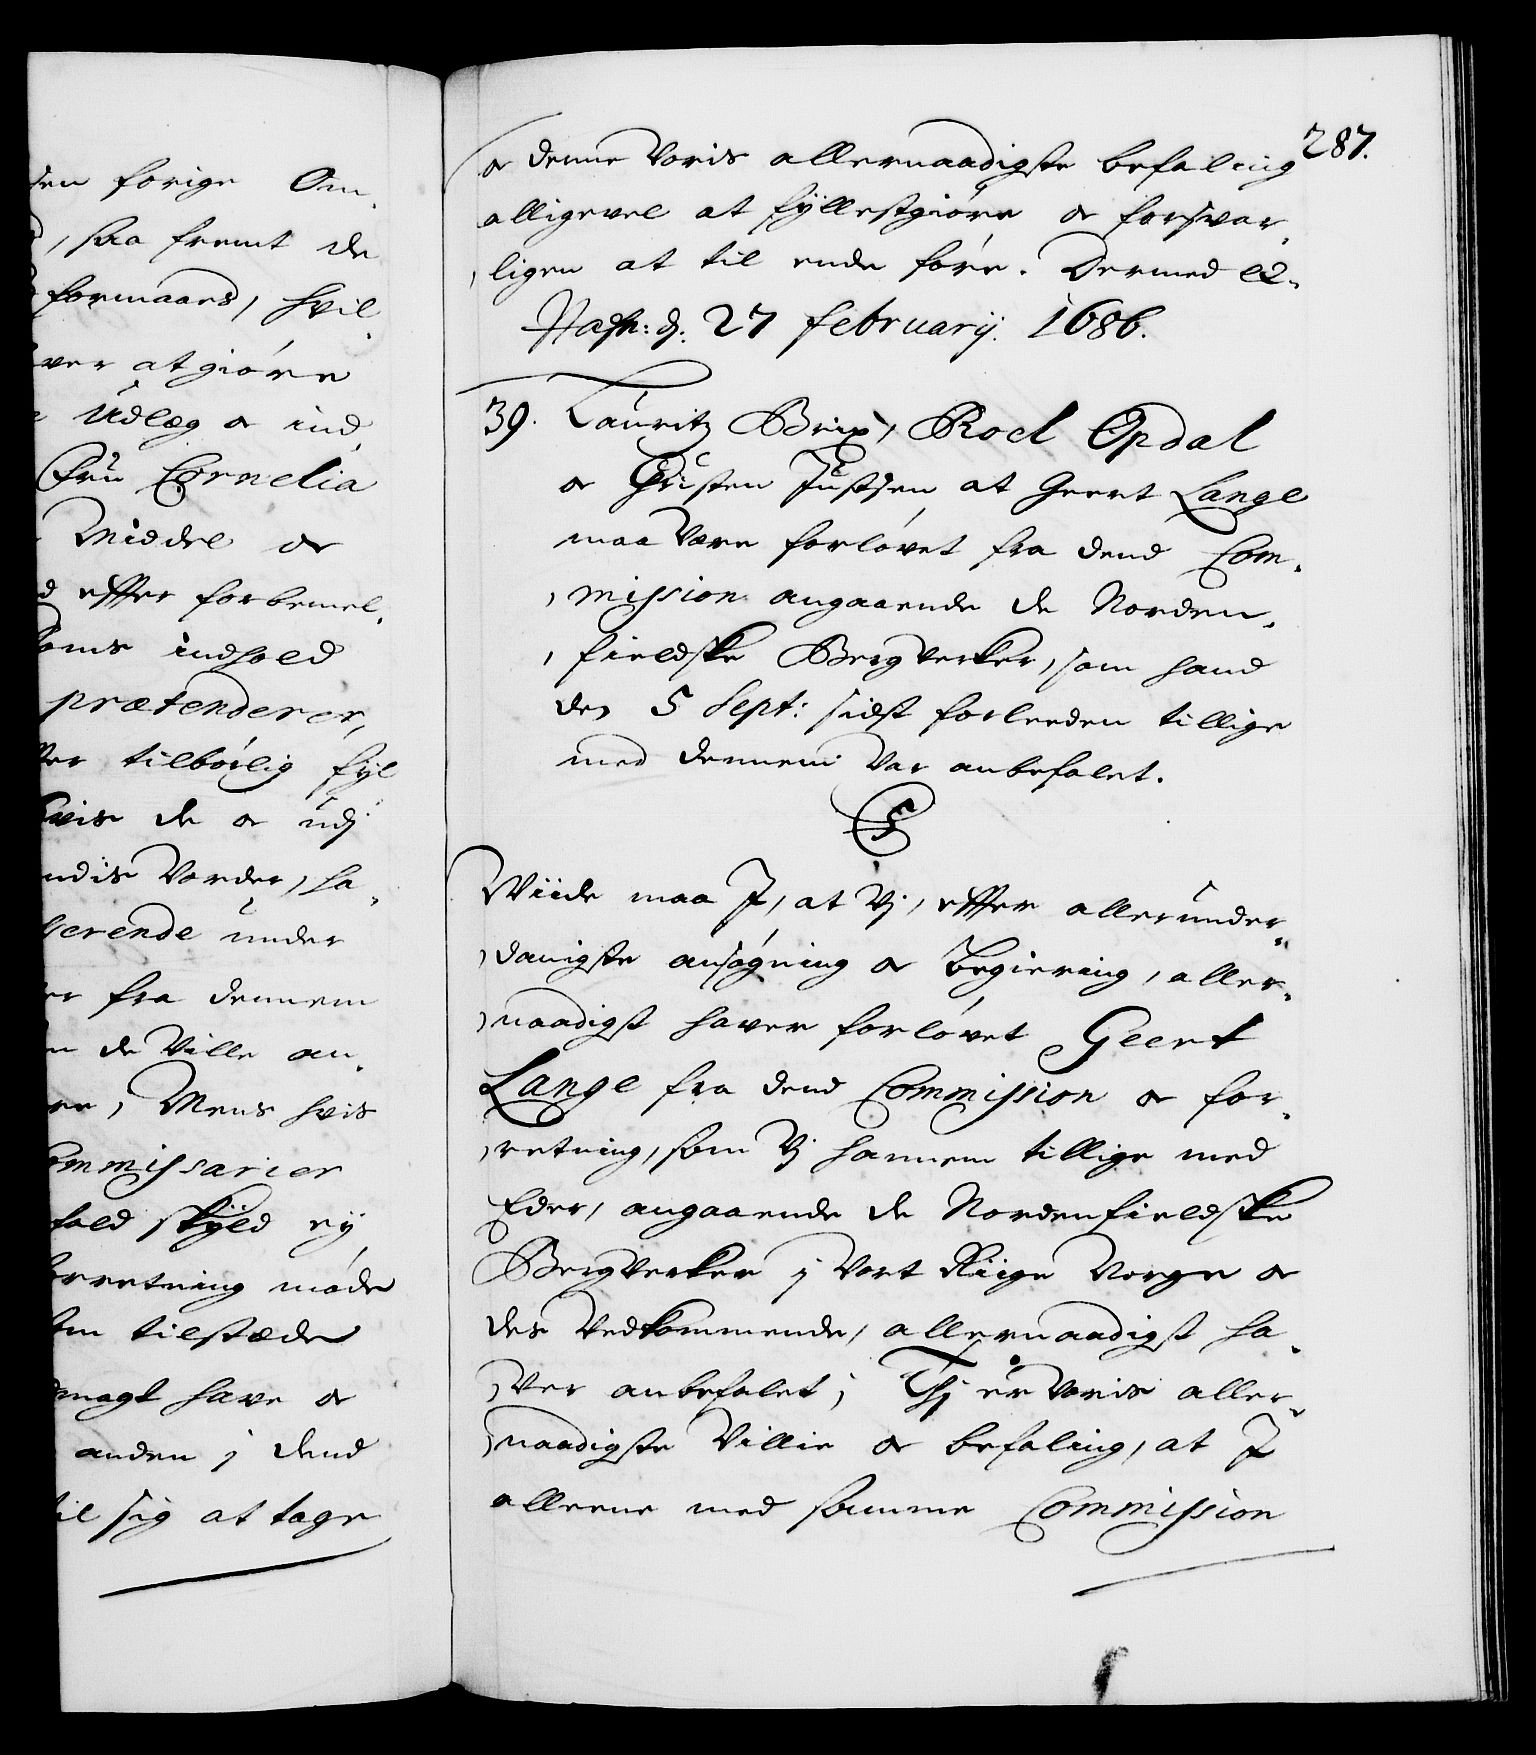 den forige Om,
, saa fremt de
formaaes, hvil,
ver at giøre
Udlæg oc ind,
Fru Cornelia
Middel oc
d effter forbemel,
doms indhold
prætenderer,
ter tilbørlig fyl
hvis de oc udj
ndis Vorder, ha,
erende under
er fra dennem
de Ville an,
re, Mens hvis
ommissarier
fald skyld ey
orretning møde
tilstæde
magt have oc
anden j dend
til sig at tage
287.
oc denne Voris allernaadigste befaling
alligevel at fyllestgiøre oc forsvar,
,ligen at til ende føre. Dermed &.
Hafn: d. 27 februarij. 1686.
39. Lauritz Brix, Roel Opdal
oc Christen Justsen at Geert Lange
maa være forløvet fra dend Com,
,mission angaaende de Norden,
,fieldske Bergverker, som hand
den 5 Sept: sidst forleeden tillige
med dennem Var anbefalet.
C5
Wiide maa I, at Vj, effter allerunder,
,danigste ansøgning oc Begiering, aller,
,naadigst haver forløvet Geert
Lange fra dend Commission oc for,
,retning, som Vj hannem tillige med
Eder, angaaende de Nordenfieldske
Bergverker j Vort Riige Norge oc
des Vedkommende, allernaadigst ha,
,ver anbefalet; Thj er Voris aller,
,naadigste Villie oc befaling, at I
alleene med samme Commission